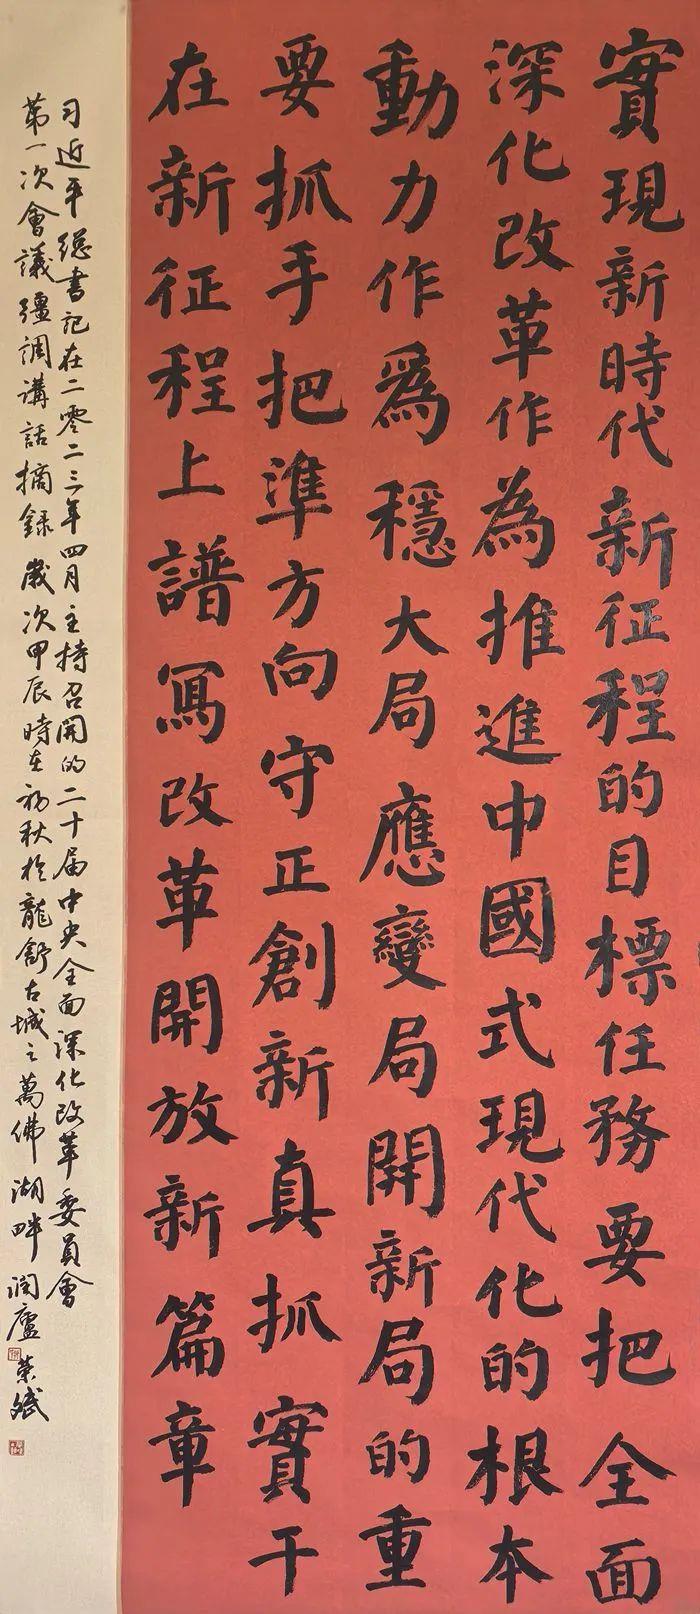 實現新時代新征程的目標任務要把全面
深化改革作為推進中國式現代化的根本
動力作爲穩大局應變局開新局的重
要抓手把準方向守正創新真抓實干
在新征程上譜寫改革開放新篇章
习近平總書記在二零二三年四月主持召開的二十届中央全面深化改革委員會
第一次會議強調講話摘録歲次甲辰時在初秋於龍舒古城之萬佛湖畔潤廬
榮斌